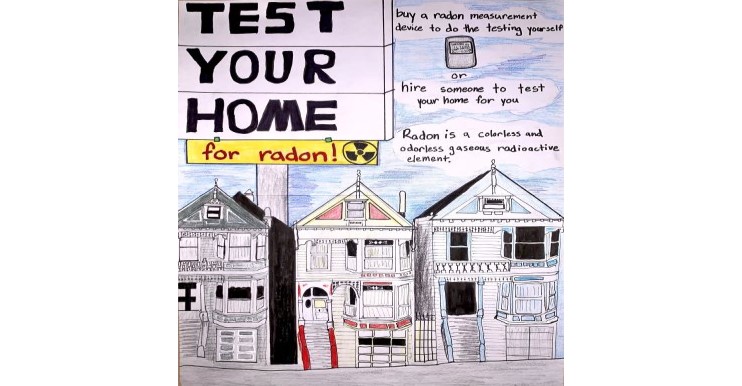 TEST
YOUR
HOME
for radon!
buy a radon measurement
device to do the testing yourself
or
hire someone to test
your home for you
Radon is a colorless and
odorless gaseous radioactive
element.